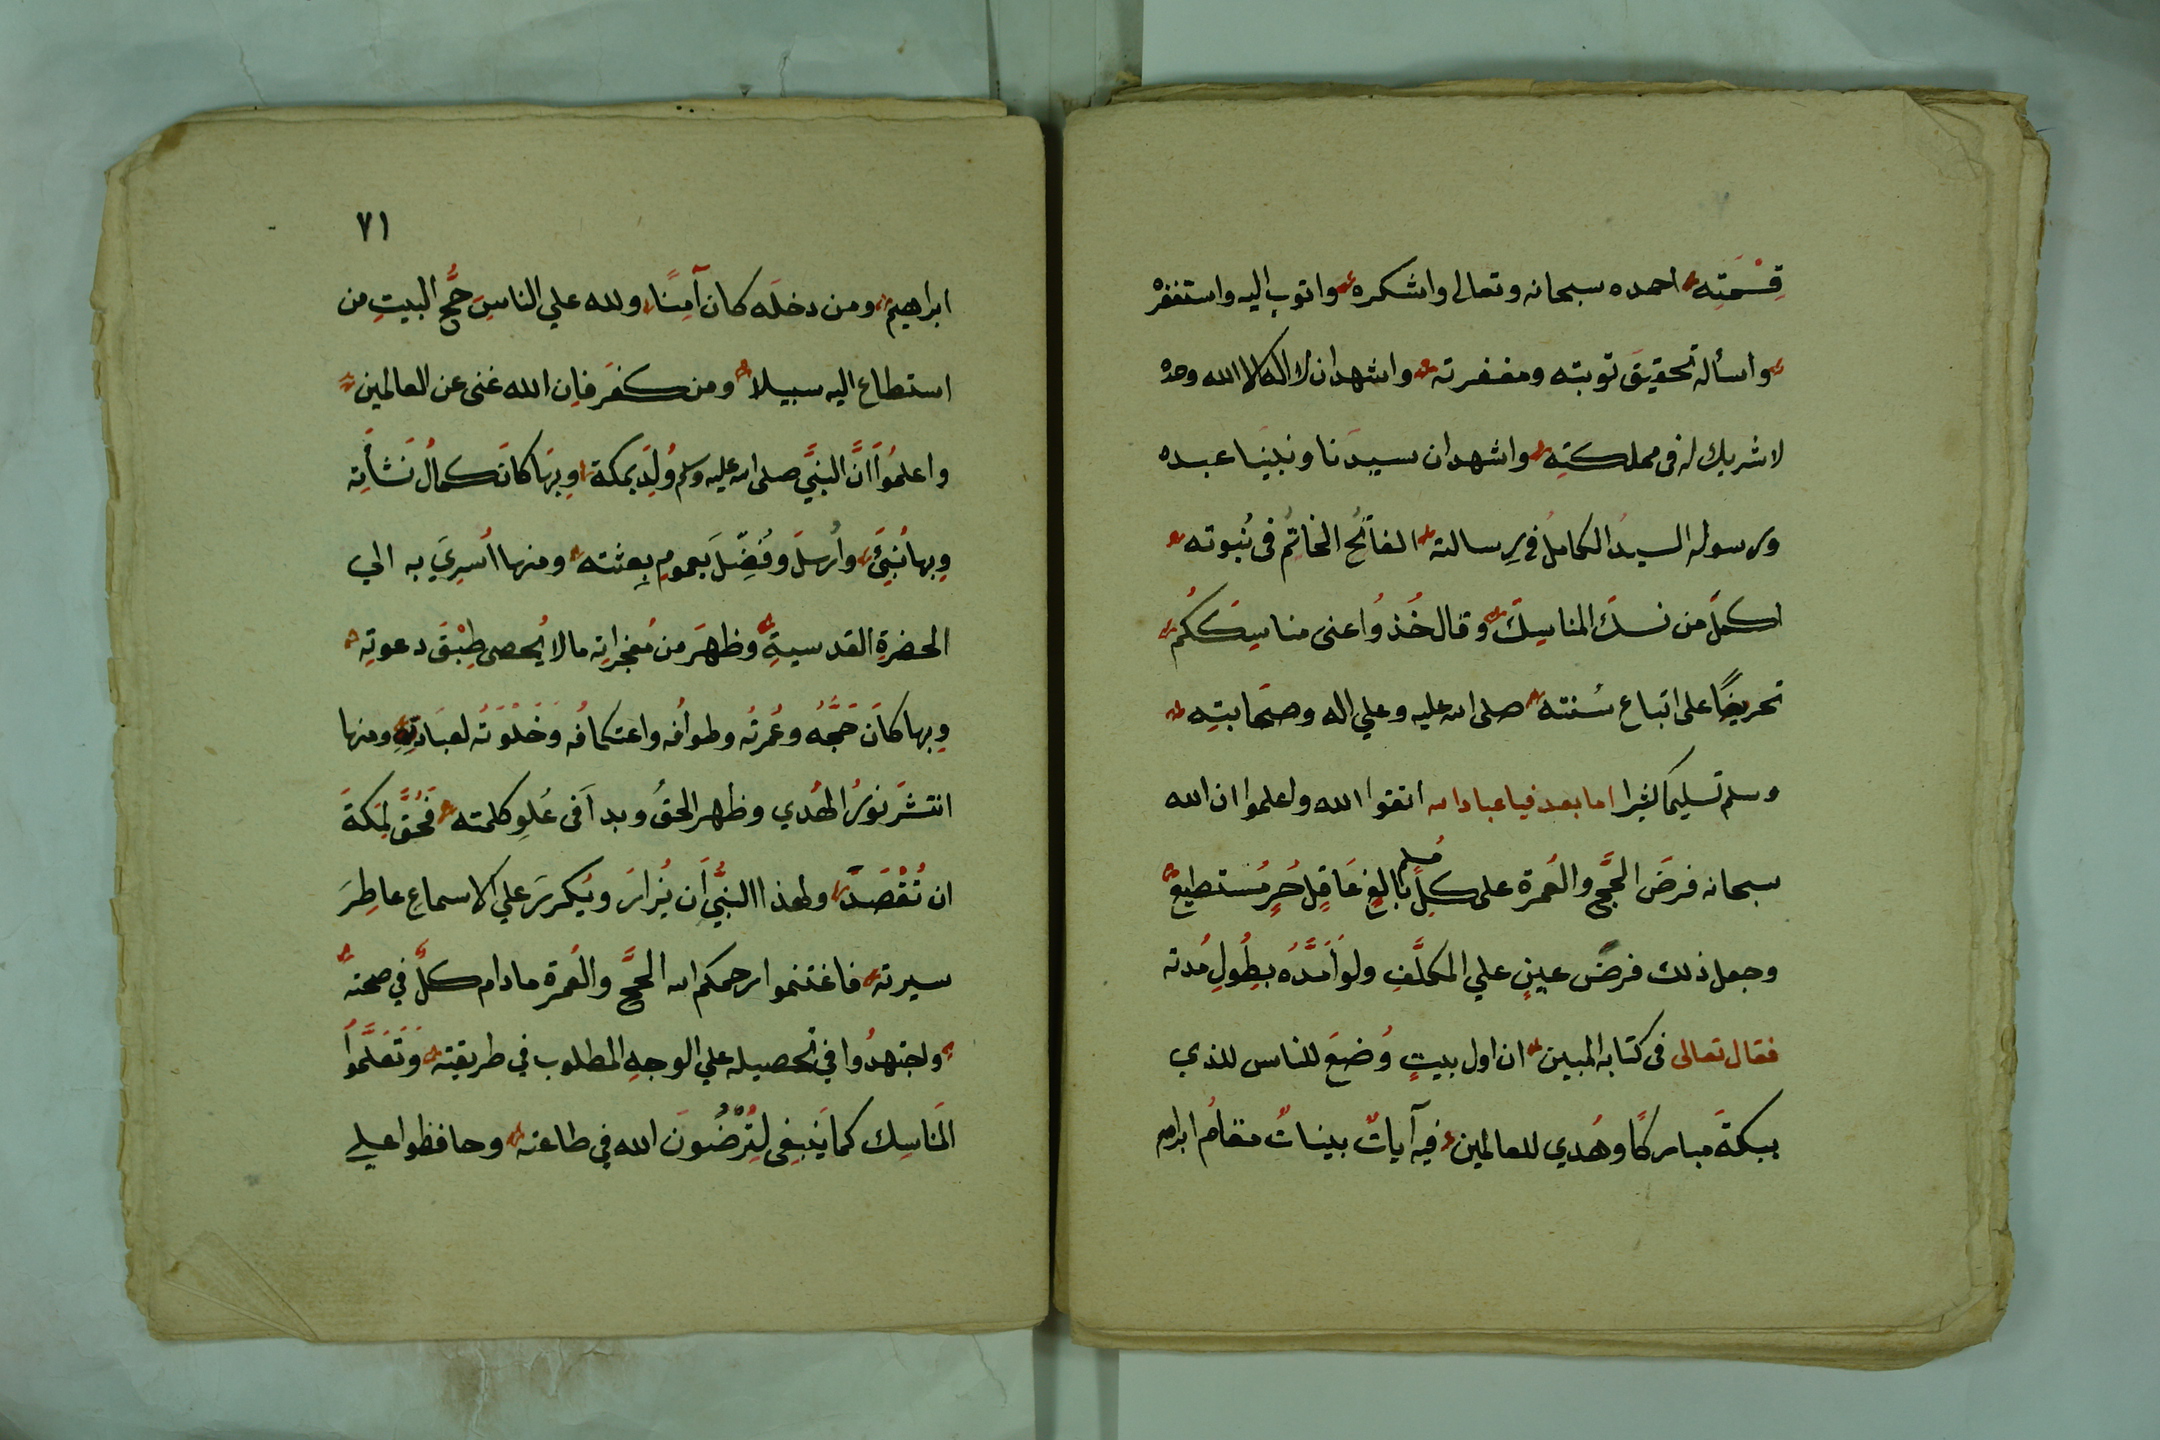 قِسْمَتِه احمده سبحانه وتعالى واشكره واتوب اليه واستغفره
واسأله تحقيقَ توبته ومغفرته واشهد ان لا اله الا الله وحده
لا شريك له فى مملكتِه واشهد ان سيدَنا ونبيَنا عبده
ورسوله السيدُ الكاملُ فى رِسالته الفاتحُ الخاتِمُ فى نُبوته
اكملُ من نسك المناسِكَ وقال خُذوُا عنى مناسِكَكُم
تحريضًا على اتباع سُنته صلى الله عليه وعلي اله وصَحابتِه
وسلم تسليما كثيرا اما بعد فيا عباد الله اتقوا الله واعلموا ان الله
سبحانه فرضَ الحجَّ والعُمرة على كلِّ مُسلم بالغٍ عَاقِلٍ حُرٍ مُستطيع
وجعل ذلك فرضَ عينٍ علي المكلَّفِ ولو أَمَدَّهُ بِطُولِ مُدته
فقال تعالى فى كتابه المبين ان اول بيتٍ وُضعَ للناس للذي
ببكةَ مباركًا وهُدي للعالمين فيه آياتٌ بيناتٌ مقامُ ابراهيم
٧١
ابراهيم ومن دخلَه كان آمِنًا ولله علي الناسِ حِجُّ البيتِ من
استطاع اليه سبيلا ومن كفَر فاِن الله غنى عن العالمين
واعلمُوا اَنَّ النبيَّ صلى الله عليه وسلم وُلِدَ بمكة وبِها كانَ كمالُ نَشأَتِه
وبِها نُبِئَ وأُرسلَ وفُضِّلَ بعمومِ بِعثته ومنها اُسرِيَ به الي
الحضرةِ القدسيةِ وظهرَ من مُعجزاتِه ما لا يُحصى طِبْقَ دعوتِه
وبِها كاَن حَجَّهُ وعُمرتُه وطوافُه واعتكافُه وَخَلْوَتُه لعبَادتِهِ ومنها
انتشرَ نورُ الهُدي وظهر الحقُ وبدأ فى عُلوِ كلمته فَحُقَّ لِمَكةَ
ان تُقْصَدَ ولهذا النبيِّ أَن يُزارَ ويُكررَ علي الاسماعِ عاطِرَ
سيرته فاغتنموا رحمكم الله الحجَّ والعُمرة ما دام كلٌّ في صحته
واجتهدُوا في تحصيله علي الوجهِ المطلوب في طريقته وَتَعَلَّموُا
المَناسِك كما يَنبغِى لِتُرْضُونَ الله في طاعته وحافظوا علي